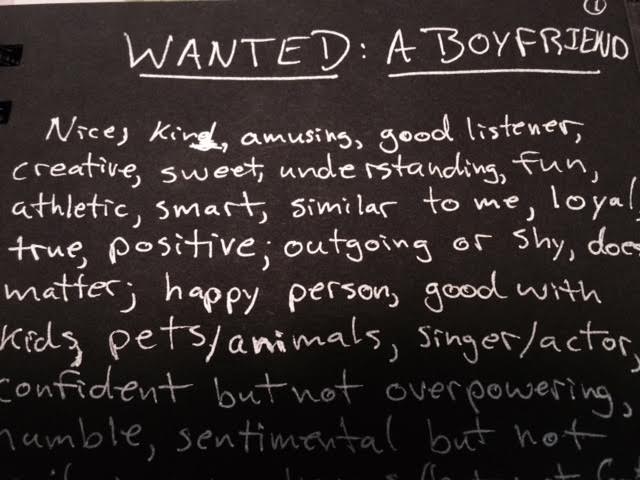 1
WANTED: A BOYFRIEND
Nice, kind, amusing, good listener,
creative, sweet, understanding, fun,
athletic, smart, similar to me, loyal
true, positive; outgoing or shy, does
matter; happy person, good with
kids, pets/animals, singer/actor,
confident but not overpowering,
humble, sentimental but not